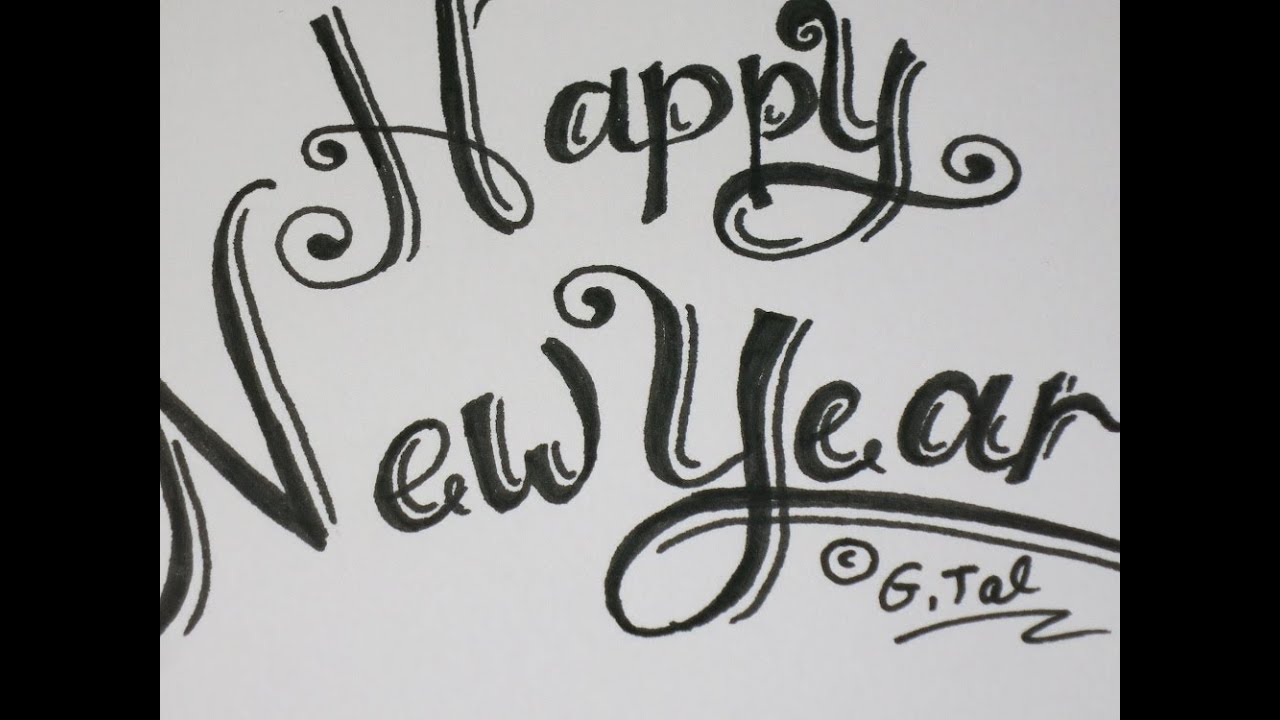 Happy
New Year
© G. Tal